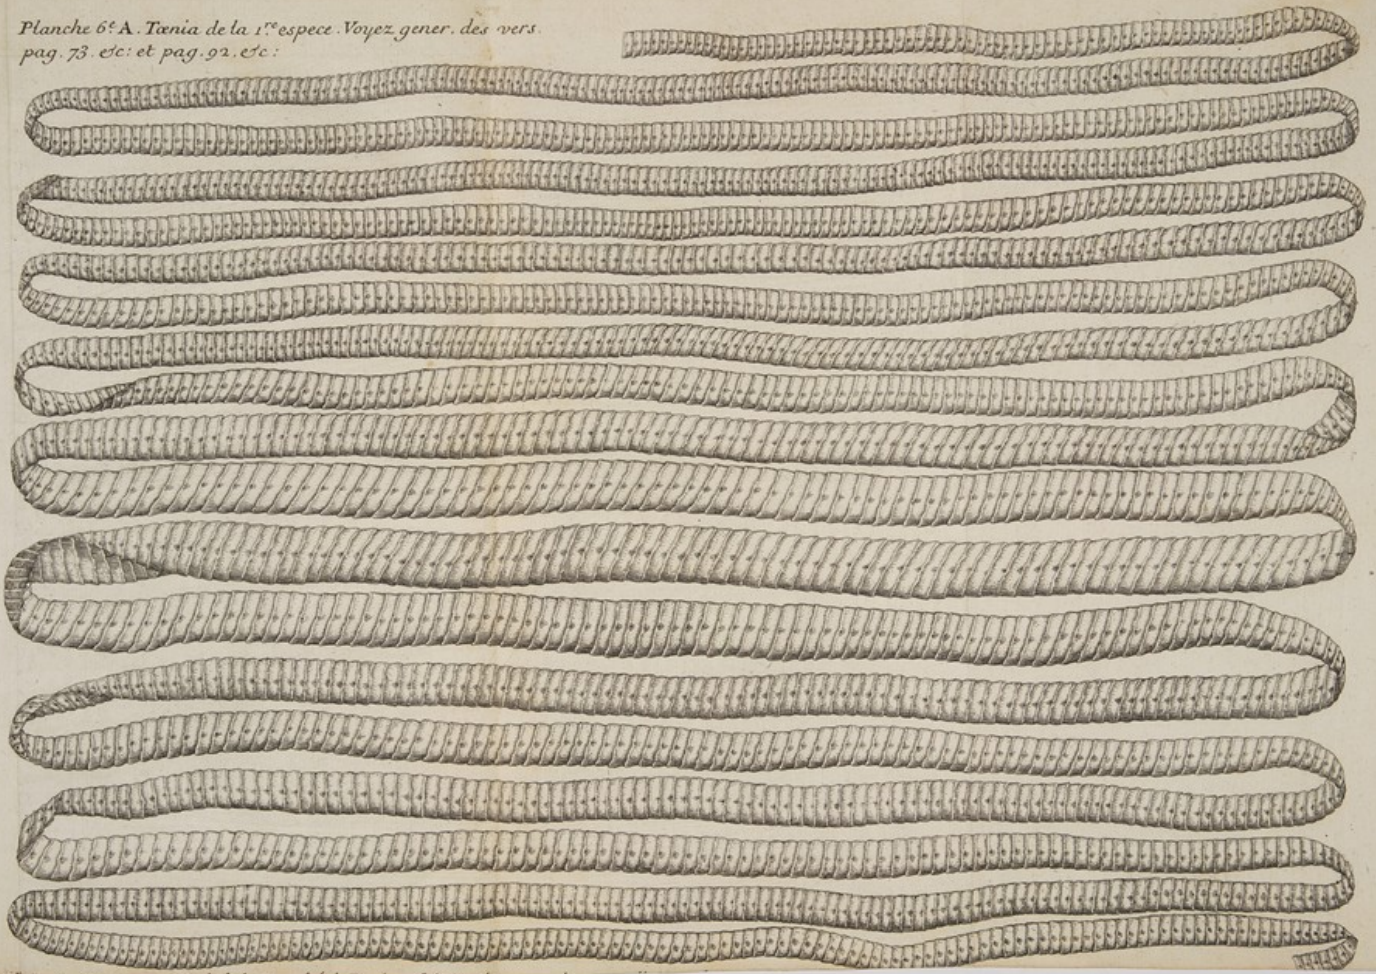 Planche 6.e A. Tænia de la 1.re espece. Voyez gener. des vers.
pag. 73. &c: et pag. 92. &c: